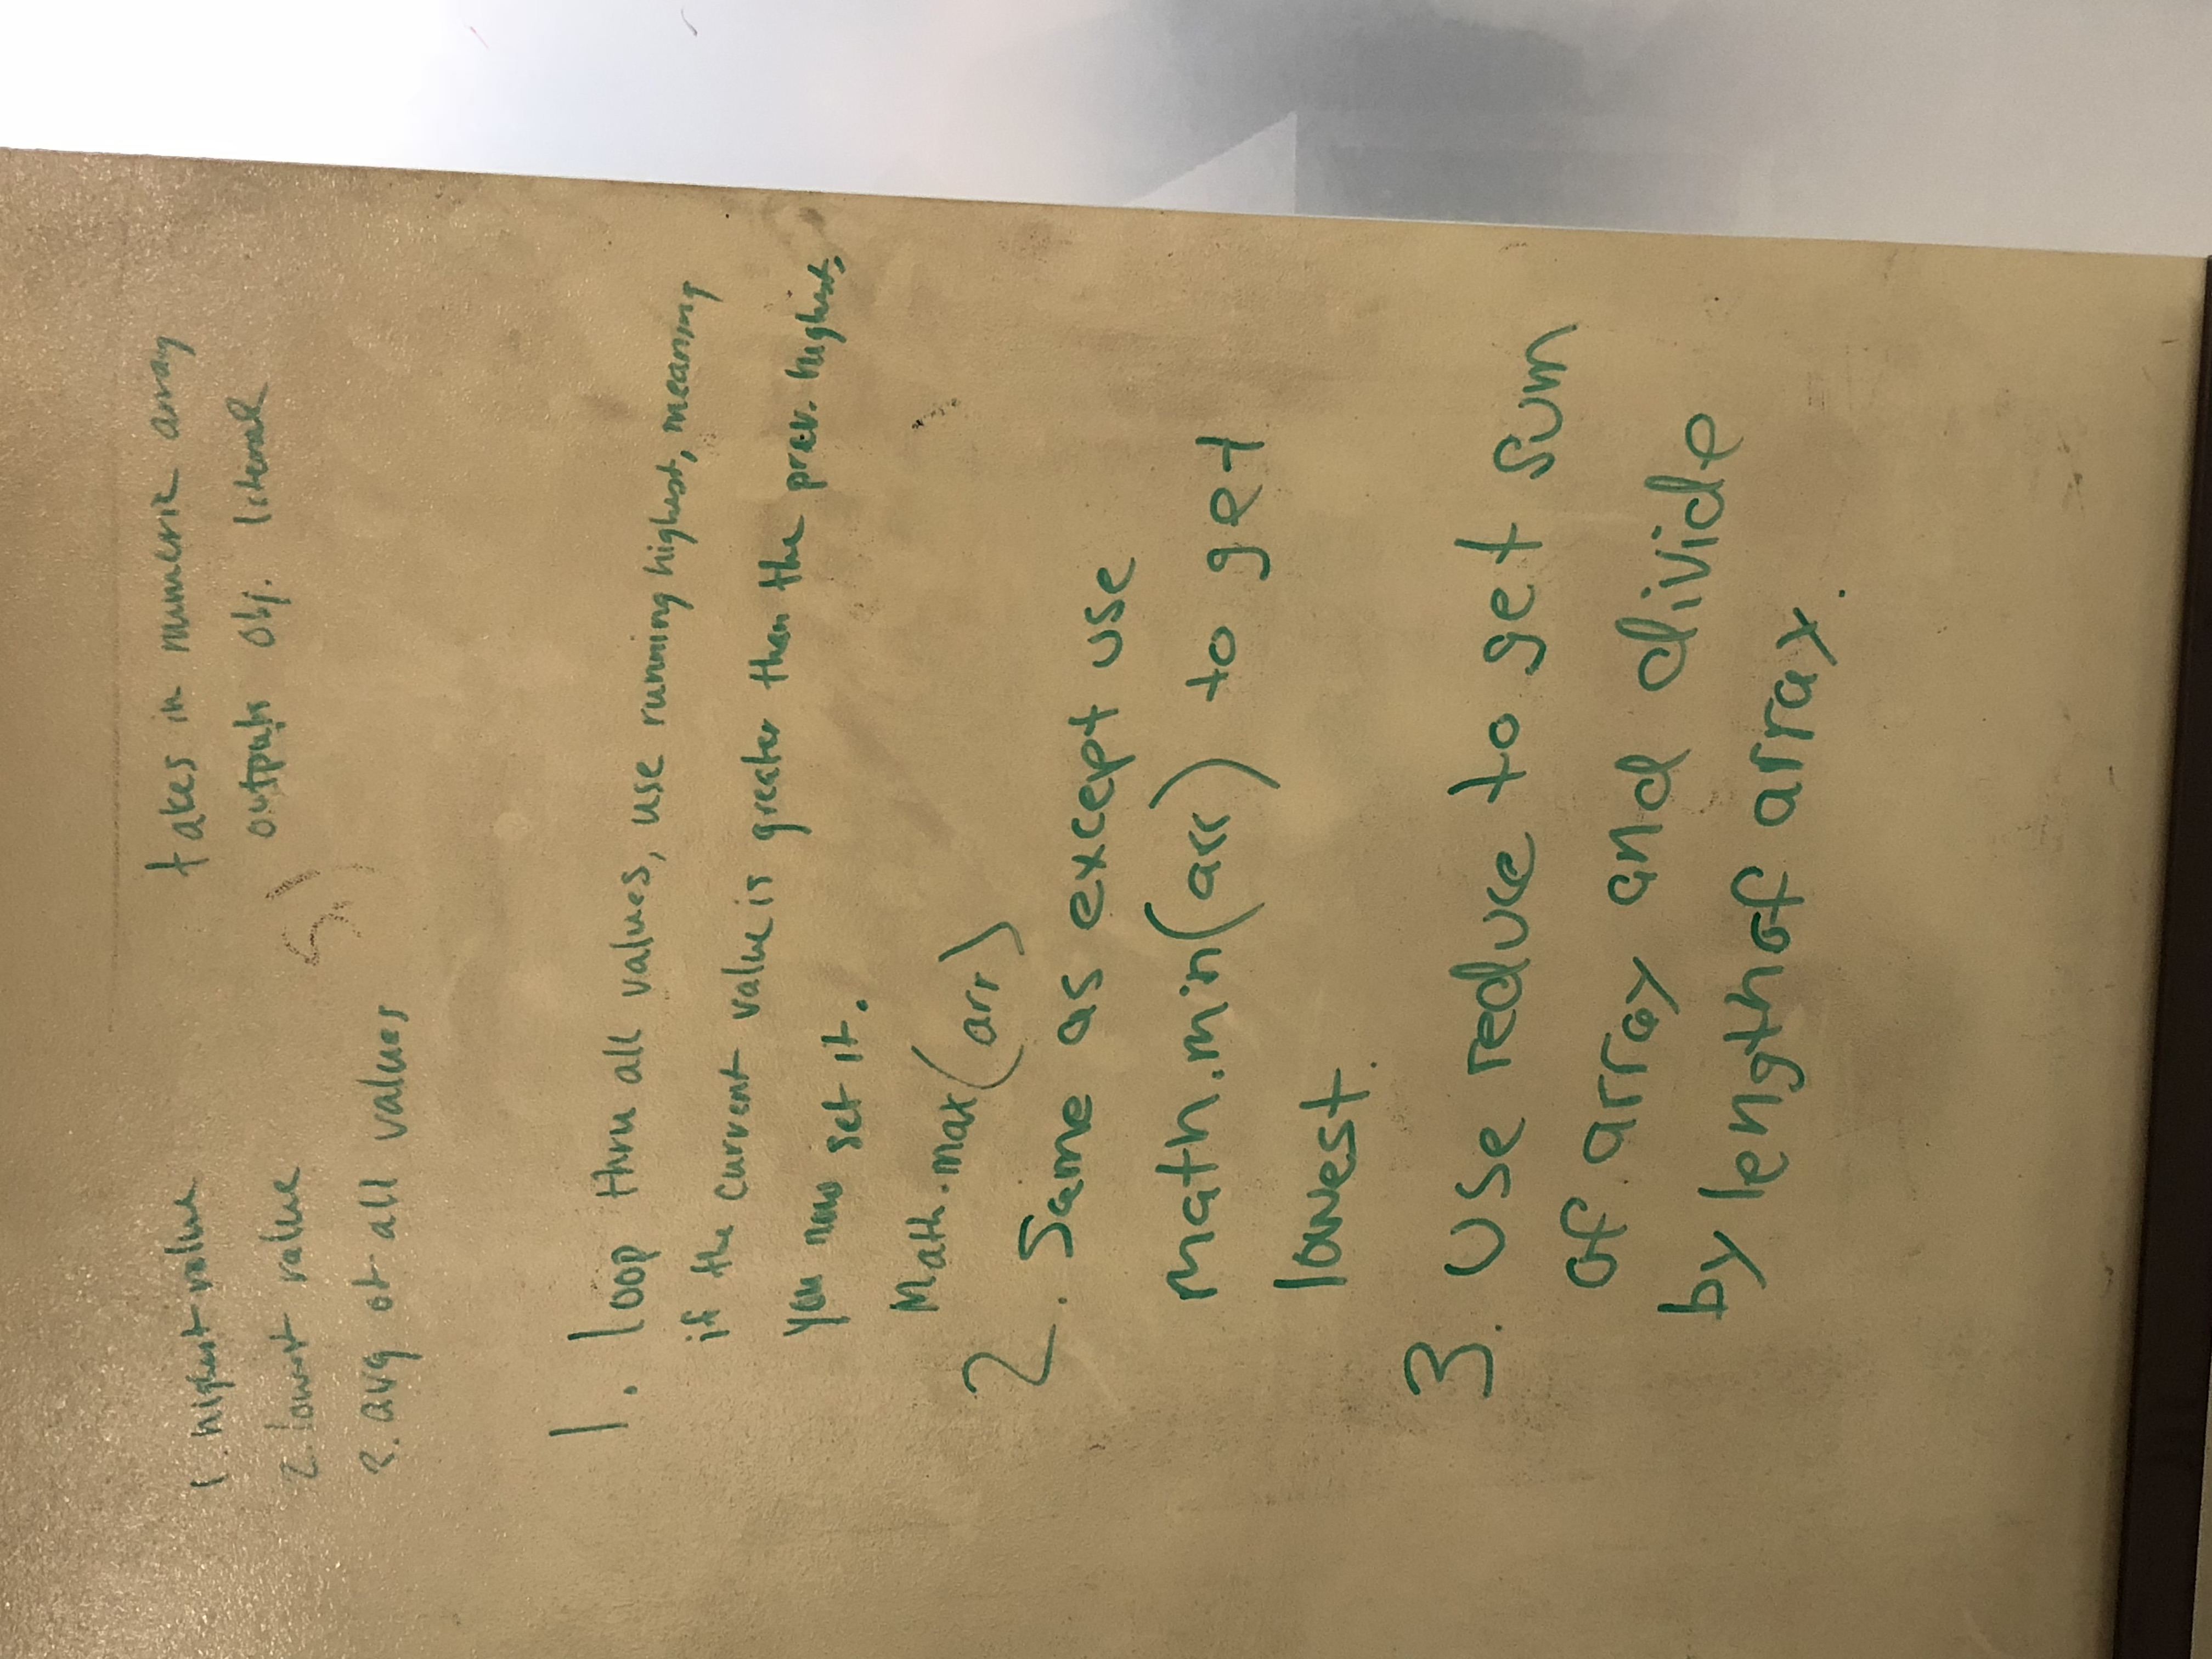 1. highest value
2. lowest value
3. avg of all values
takes in numeric array
outputs obj. literal
5)
1. loop thru all values, use running highest, meaning
if the current value is greater than the prev. highest,
you now set it.
Math.max(arr)
2. Same as except use
math.min(arr) to get
lowest.
3. Use reduce to get sum
of array and divide
by length of array.